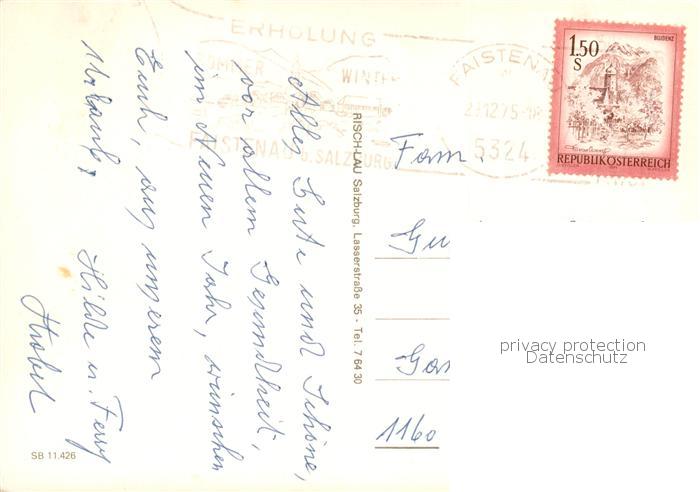 ERHOLUNG
SOMMER WINTER
FAISTENAU b. SALZBURG
FAISTENAU
29.12.75-18
5324
BLUDENZ
1.50
S
REPUBLIK ÖSTERREICH
Alles Gute und Schöne,
vor allem Gesundheit,
im Neuen Jahr, wünschen
Euch, aus unserem
Urlaub,
Hilde u. Ferry
RISCH-LAU Salzburg, Lasserstraße 35 - Tel. 7 64 30
Fam.
Gu
Gas
1160
SB 11.426
privacy protection
Datenschutz